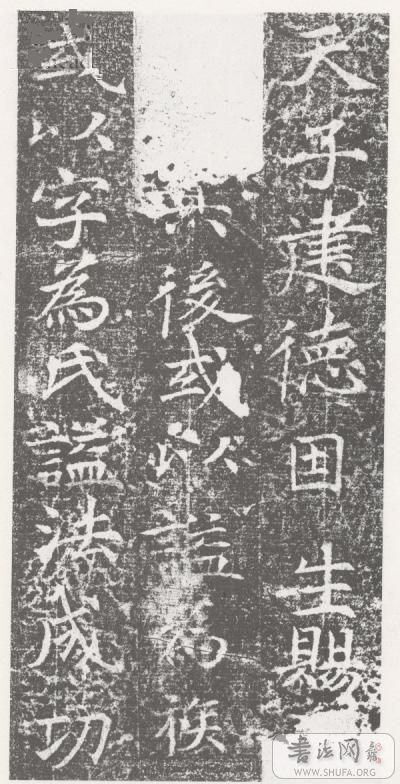 天子建德因生賜
其後或以諡為候
或以字為氏諡法成功
書法网
WWW.SHUFA.ORG